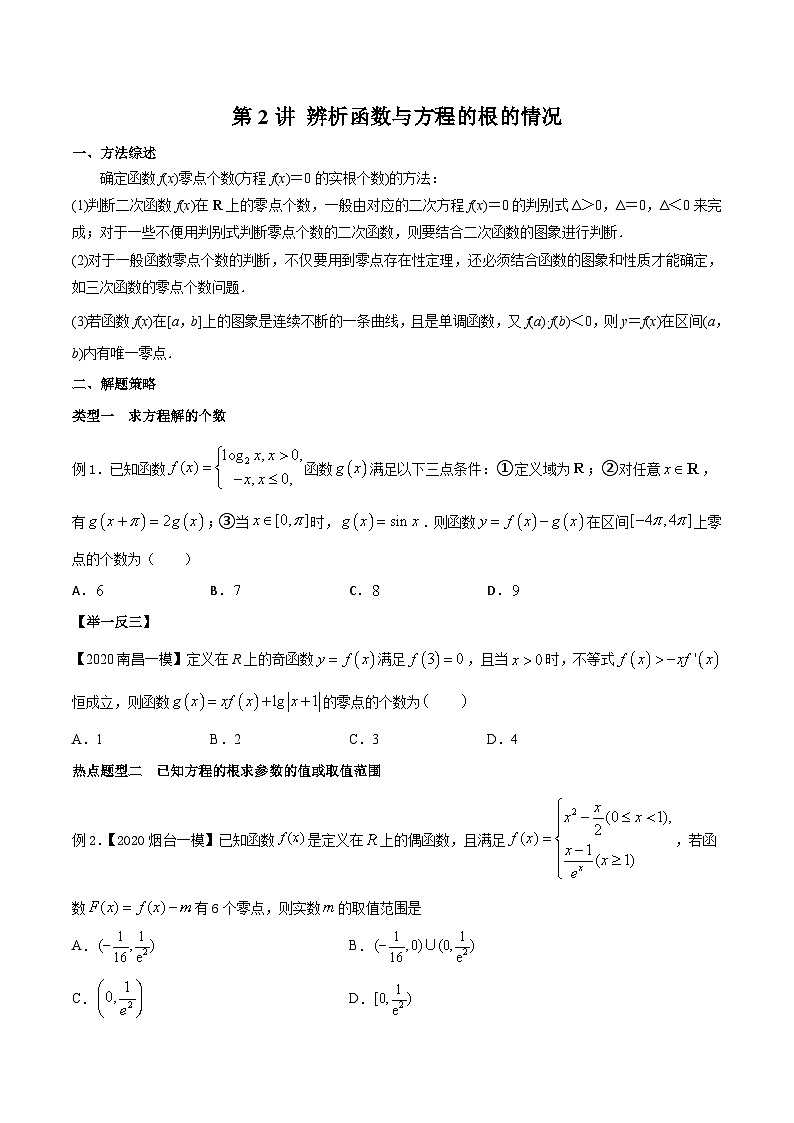 第 2 讲 辨析函数与方程的根的情况
一、方法综述
确定函数 f(x)零点个数(方程 f(x)＝0 的实根个数)的方法：
(1)判断二次函数 f(x)在 R 上的零点个数，一般由对应的二次方程 f(x)＝0 的判别式 Δ＞0，Δ＝0，Δ＜0 来完
成；对于一些不便用判别式判断零点个数的二次函数，则要结合二次函数的图象进行判断．
(2)对于一般函数零点个数的判断，不仅要用到零点存在性定理，还必须结合函数的图象和性质才能确定，
如三次函数的零点个数问题．
(3)若函数 f(x)在[a，b]上的图象是连续不断的一条曲线，且是单调函数，又 f(a)·f(b)＜0，则 y＝f(x)在区间(a，
b)内有唯一零点．
二、解题策略
类型一 求方程解的个数
例 1．已知函数 f(x) = { log₂ x, x > 0, −x, x ≤ 0, 函数 g(x) 满足以下三点条件：①定义域为 R；②对任意 x ∈ R，
有 g(x + π) = 2g(x)；③当 x ∈ [0, π] 时，g(x) = sin x．则函数 y = f(x) − g(x) 在区间[−4π, 4π] 上零
点的个数为（ ）
A．6 B．7 C．8 D．9
【举一反三】
【2020 南昌一模】定义在 R 上的奇函数 y = f(x) 满足 f(3) = 0，且当 x > 0 时，不等式 f(x) > −xf '(x)
恒成立，则函数 g(x) = xf(x) + lg|x + 1| 的零点的个数为( )
A．1 B．2 C．3 D．4
热点题型二 已知方程的根求参数的值或取值范围
例 2．【2020 烟台一模】已知函数 f(x) 是定义在 R 上的偶函数，且满足 f(x) = { x² − x/2 (0 ≤ x < 1), (x − 1)/eˣ (x ≥ 1) ，若函
数 F(x) = f(x) − m 有 6 个零点，则实数 m 的取值范围是
A．(−1/16, 1/e²) B．(−1/16, 0) ∪ (0, 1/e²)
C．(0, 1/e²) D．[0, 1/e²)